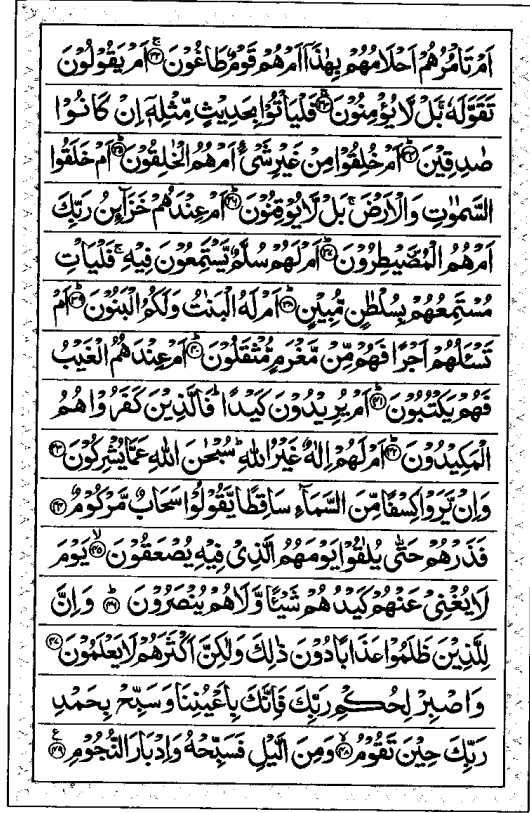 اَمۡ تَاۡمُرُهُمۡ اَحۡلَامُهُمۡ بِهٰذَاۤ اَمۡ هُمۡ قَوۡمٌ طَاغُوۡنَ ۚ‏﴿۳۲﴾ اَمۡ يَقُوۡلُوۡنَ
تَقَوَّلَهٗ ۚ بَلۡ لَّا يُؤۡمِنُوۡنَ ۚ‏﴿۳۳﴾ فَلۡيَاۡتُوۡا بِحَدِيۡثٍ مِّثۡلِهٖۤ اِنۡ كَانُوۡا
صٰدِقِيۡنَ ؕ‏﴿۳۴﴾ اَمۡ خُلِقُوۡا مِنۡ غَيۡرِ شَىۡءٍ اَمۡ هُمُ الۡخٰلِقُوۡنَ ؕ‏﴿۳۵﴾ اَمۡ خَلَقُوا
السَّمٰوٰتِ وَالۡاَرۡضَ ۚ بَلۡ لَّا يُوۡقِنُوۡنَ ؕ‏﴿۳۶﴾ اَمۡ عِنۡدَهُمۡ خَزَآٮِٕنُ رَبِّكَ
اَمۡ هُمُ الۡمُصَۜيۡطِرُوۡنَ ؕ‏﴿۳۷﴾ اَمۡ لَهُمۡ سُلَّمٌ يَّسۡتَمِعُوۡنَ فِيۡهِ ۚ فَلۡيَاۡتِ
مُسۡتَمِعُهُمۡ بِسُلۡطٰنٍ مُّبِيۡنٍ ؕ‏﴿۳۸﴾ اَمۡ لَهُ الۡبَنٰتُ وَلَكُمُ الۡبَنُوۡنَ ؕ‏﴿۳۹﴾ اَمۡ
تَسۡـَٔلُهُمۡ اَجۡرًا فَهُمۡ مِّنۡ مَّغۡرَمٍ مُّثۡقَلُوۡنَ ؕ‏﴿۴۰﴾ اَمۡ عِنۡدَهُمُ الۡغَيۡبُ
فَهُمۡ يَكۡتُبُوۡنَ ؕ‏﴿۴۱﴾ اَمۡ يُرِيۡدُوۡنَ كَيۡدًا ؕ فَالَّذِيۡنَ كَفَرُوۡا هُمُ
الۡمَكِيۡدُوۡنَ ؕ‏﴿۴۲﴾ اَمۡ لَهُمۡ اِلٰهٌ غَيۡرُ اللّٰهِ ؕ سُبۡحٰنَ اللّٰهِ عَمَّا يُشۡرِكُوۡنَ‏﴿۴۳﴾
وَاِنۡ يَّرَوۡا كِسۡفًا مِّنَ السَّمَآءِ سَاقِطًا يَّقُوۡلُوۡا سَحَابٌ مَّرۡكُوۡمٌ‏﴿۴۴﴾
فَذَرۡهُمۡ حَتّٰى يُلٰقُوۡا يَوۡمَهُمُ الَّذِىۡ فِيۡهِ يُصۡعَقُوۡنَ ۙ‏﴿۴۵﴾ يَوۡمَ
لَا يُغۡنِىۡ عَنۡهُمۡ كَيۡدُهُمۡ شَيۡـًٔا وَّلَا هُمۡ يُنۡصَرُوۡنَ ؕ‏﴿۴۶﴾ وَاِنَّ
لِلَّذِيۡنَ ظَلَمُوۡا عَذَابًا دُوۡنَ ذٰلِكَ وَلٰـكِنَّ اَكۡثَرَهُمۡ لَا يَعۡلَمُوۡنَ‏﴿۴۷﴾
وَاصۡبِرۡ لِحُكۡمِ رَبِّكَ فَاِنَّكَ بِاَعۡيُنِنَا وَسَبِّحۡ بِحَمۡدِ
رَبِّكَ حِيۡنَ تَقُوۡمُ ۙ‏﴿۴۸﴾ وَمِنَ الَّيۡلِ فَسَبِّحۡهُ وَاِدۡبَارَ النُّجُوۡمِ‏﴿۴۹﴾ ع